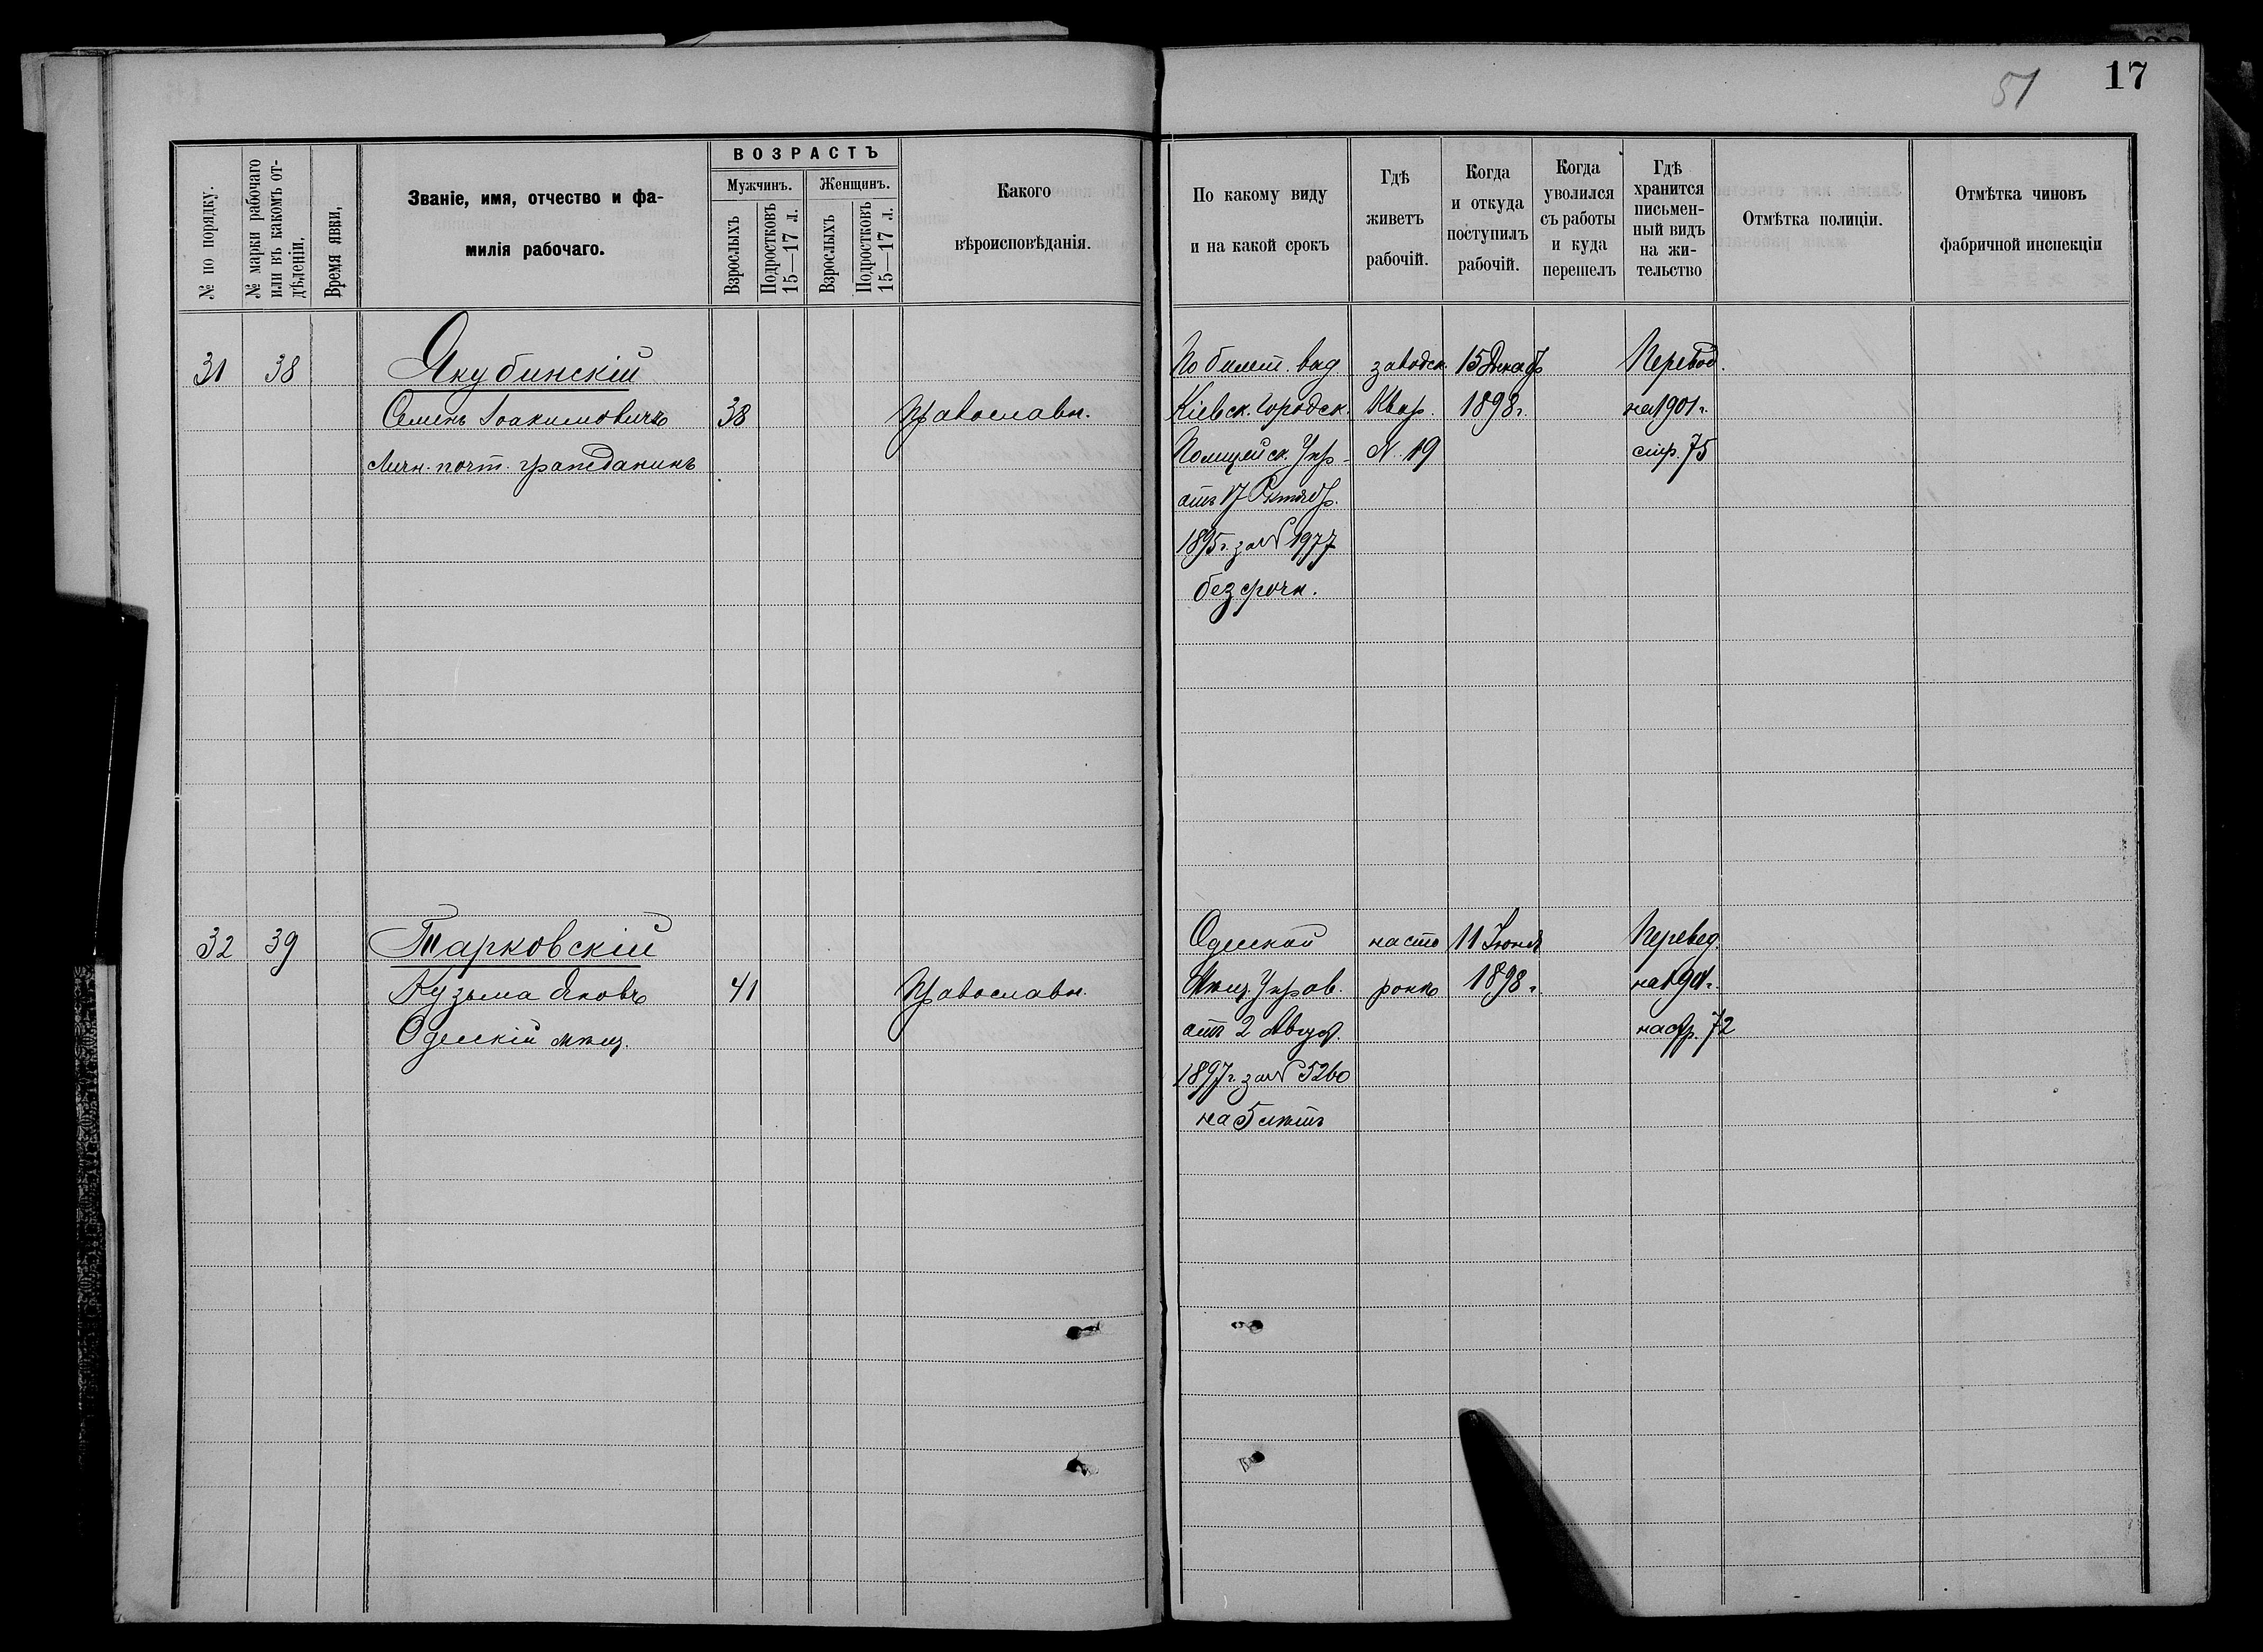 51
17
№ по порядку.
№ марки рабочаго или въ какомъ отдѣленіи.
Время явки,
Званіе, имя, отчество и фа-
милія рабочаго.
ВОЗРАСТЪ
Мужчинъ.
Женщинъ.
Взрослыхъ
Подростковъ 15—17 л.
Взрослыхъ
Подростковъ 15—17 л.
Какого
вѣроисповѣданія.
По какому виду
и на какой срокъ
Гдѣ
живетъ
рабочій.
Когда
и откуда
поступилъ
рабочій.
Когда
уволился
съ работы
и куда
перешелъ
Гдѣ
хранится
письмен-
ный видъ
на жи-
тельство
Отмѣтка полиціи.
Отмѣтка чиновъ
фабричной инспекціи
31 38 Якубинскій
Семенъ Іоакимовичъ 38 Православн.
Личн. почт. гражданинъ
По билет. выд
Кіевск. Городск.
Полицейск. Упр-
отъ 17 Октябр.
1895 г. за № 1977
безсрочн.
заводск.
Квар.
N. 19
15 Декаб
1898 г.
Перевод.
на 1901 г.
стр. 75
32 39 Тарковскій
Кузьма Яковъ 41 Православн.
Одесскій мѣщ.
Одесской
Мѣщ. Управ.
отъ 2 Август.
1897 г. за № 5260
на 5 лѣтъ
на сто
ронѣ
11 Іюня
1898 г.
Перевед.
на 1901 г.
на стр. 72